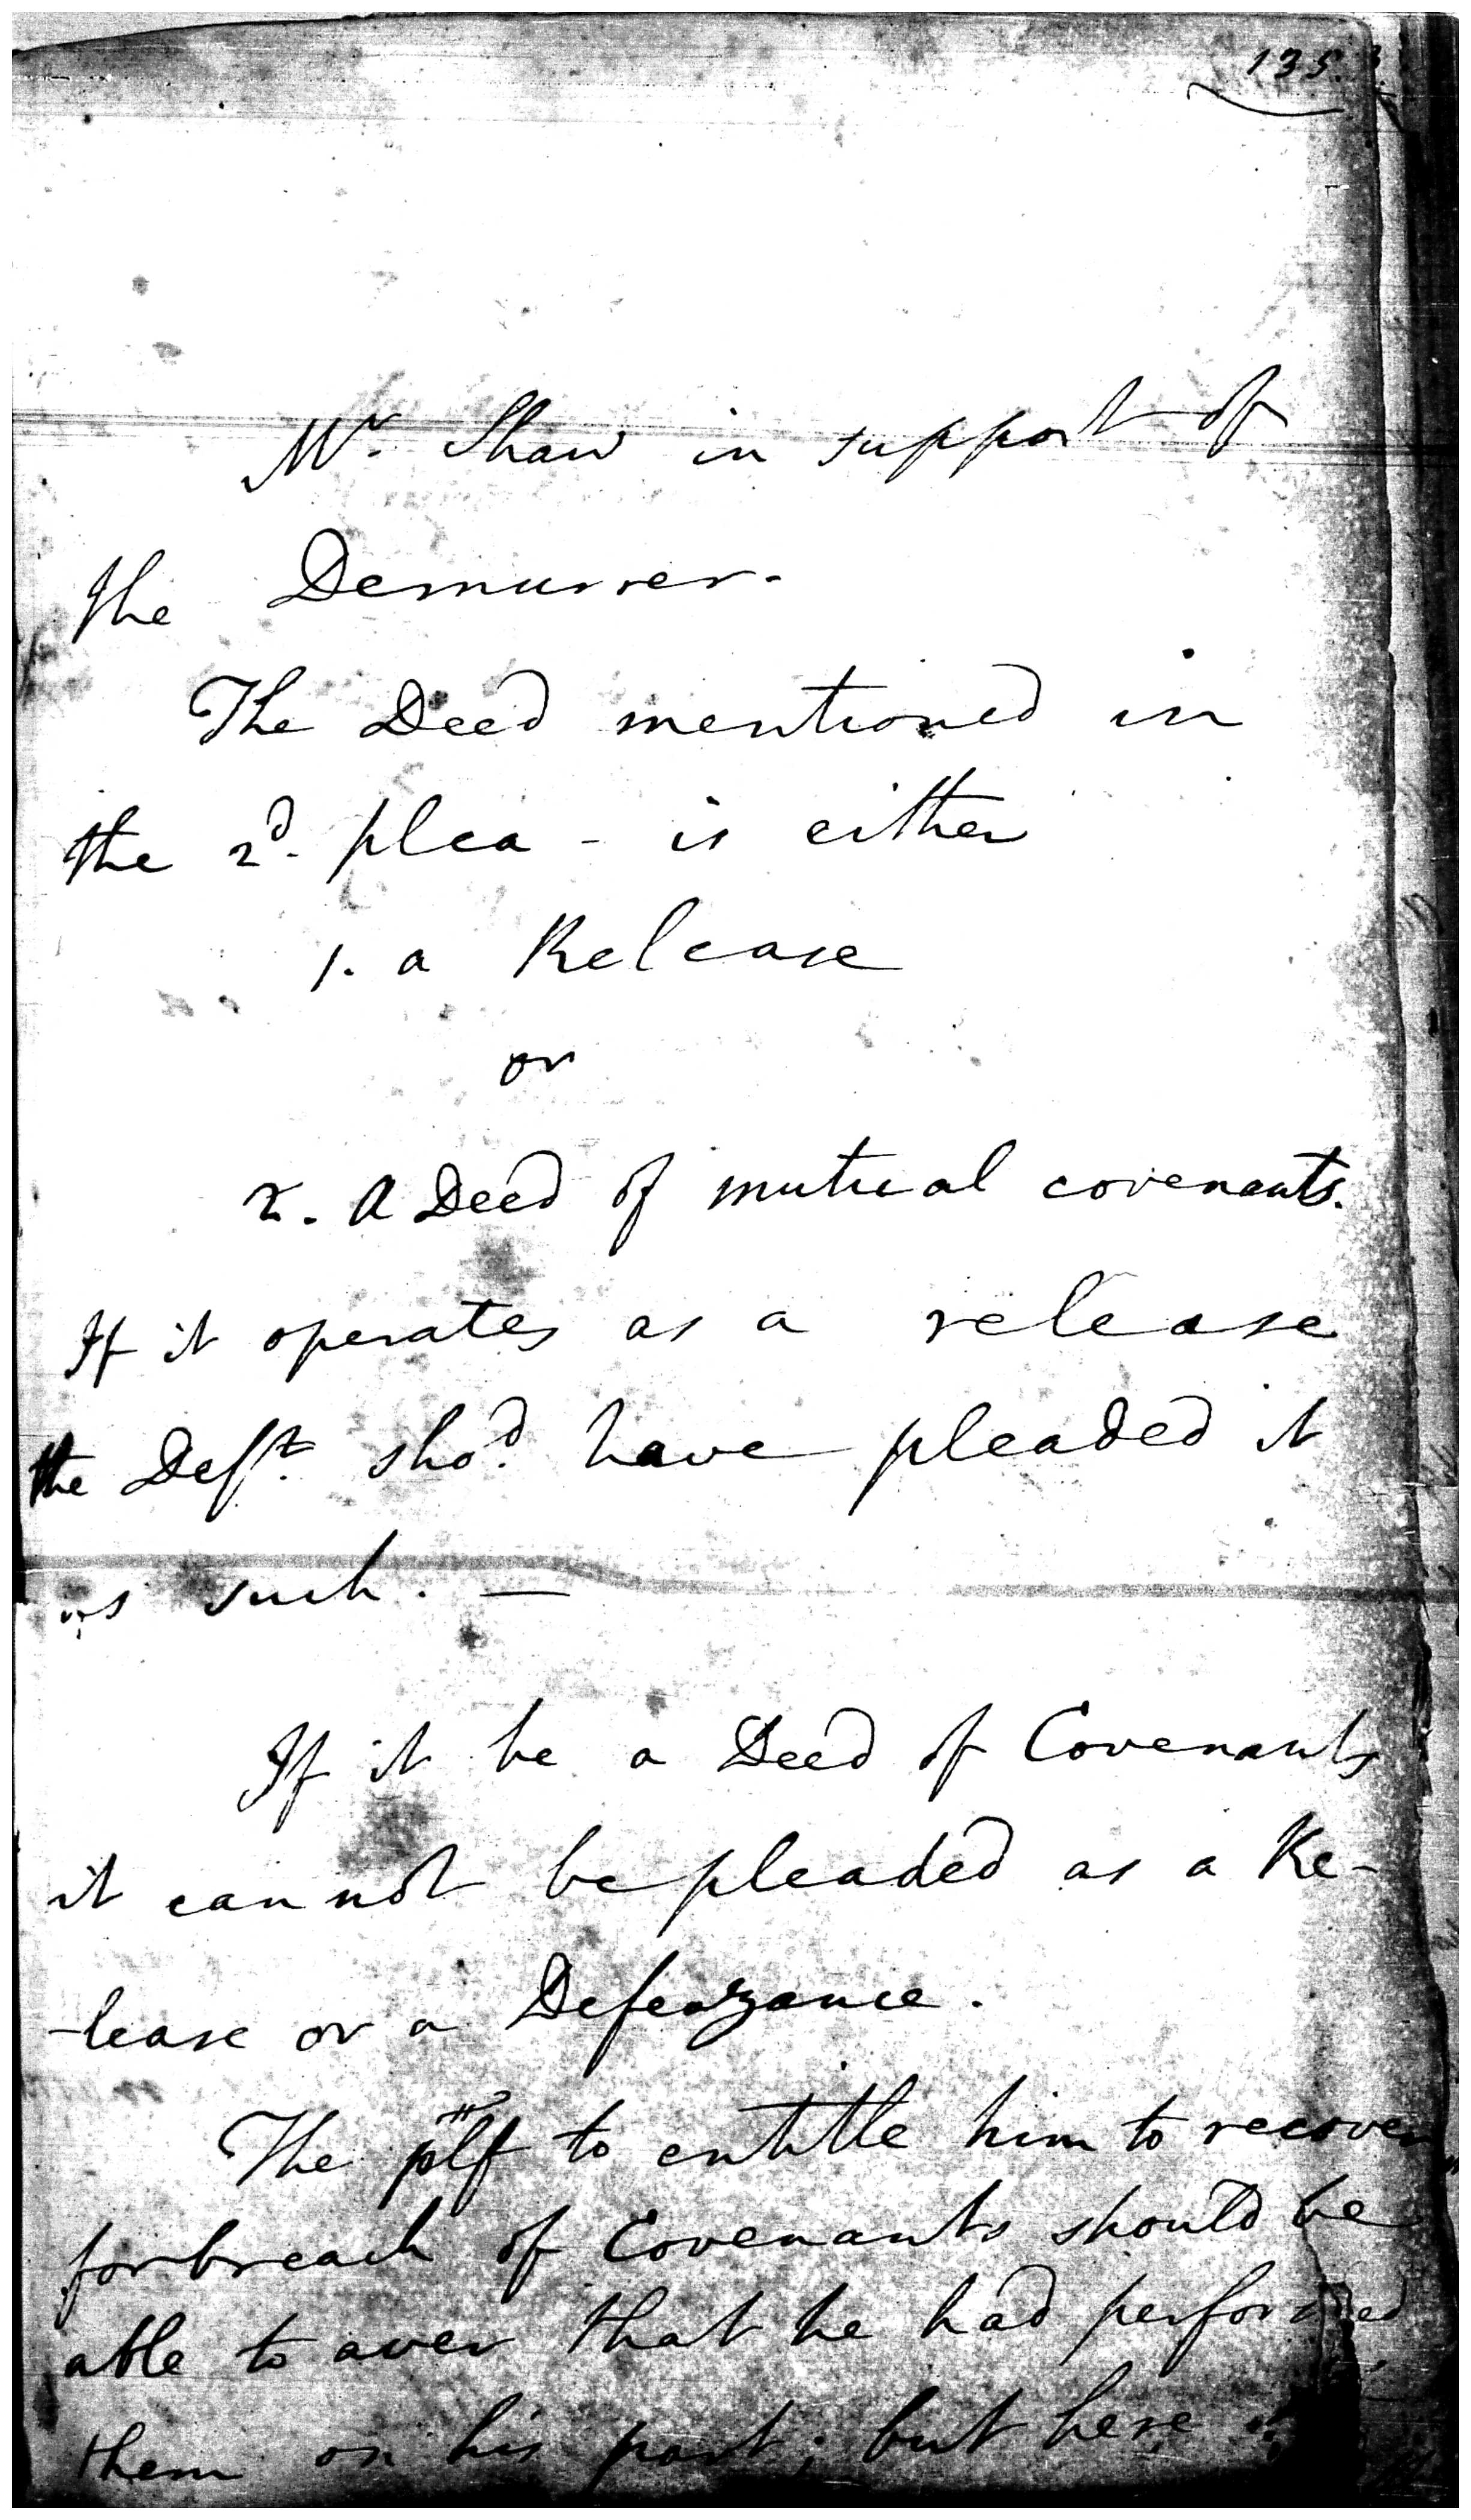 135.
Mr. Shaw in support of
the Demurrer.
The Deed mentioned in
the 2d. plea - is either
1. a Release
or
2. A Deed of mutual covenants.
If it operates as a release
the Deft. shod. have pleaded it
as such. —
If it be a Deed of Covenants
it cannot be pleaded as a Re-
-lease or a Defeazance.
The plf to entitle him to recover
for breach of Covenants should be
able to aver that he had performed
them on his part; but here